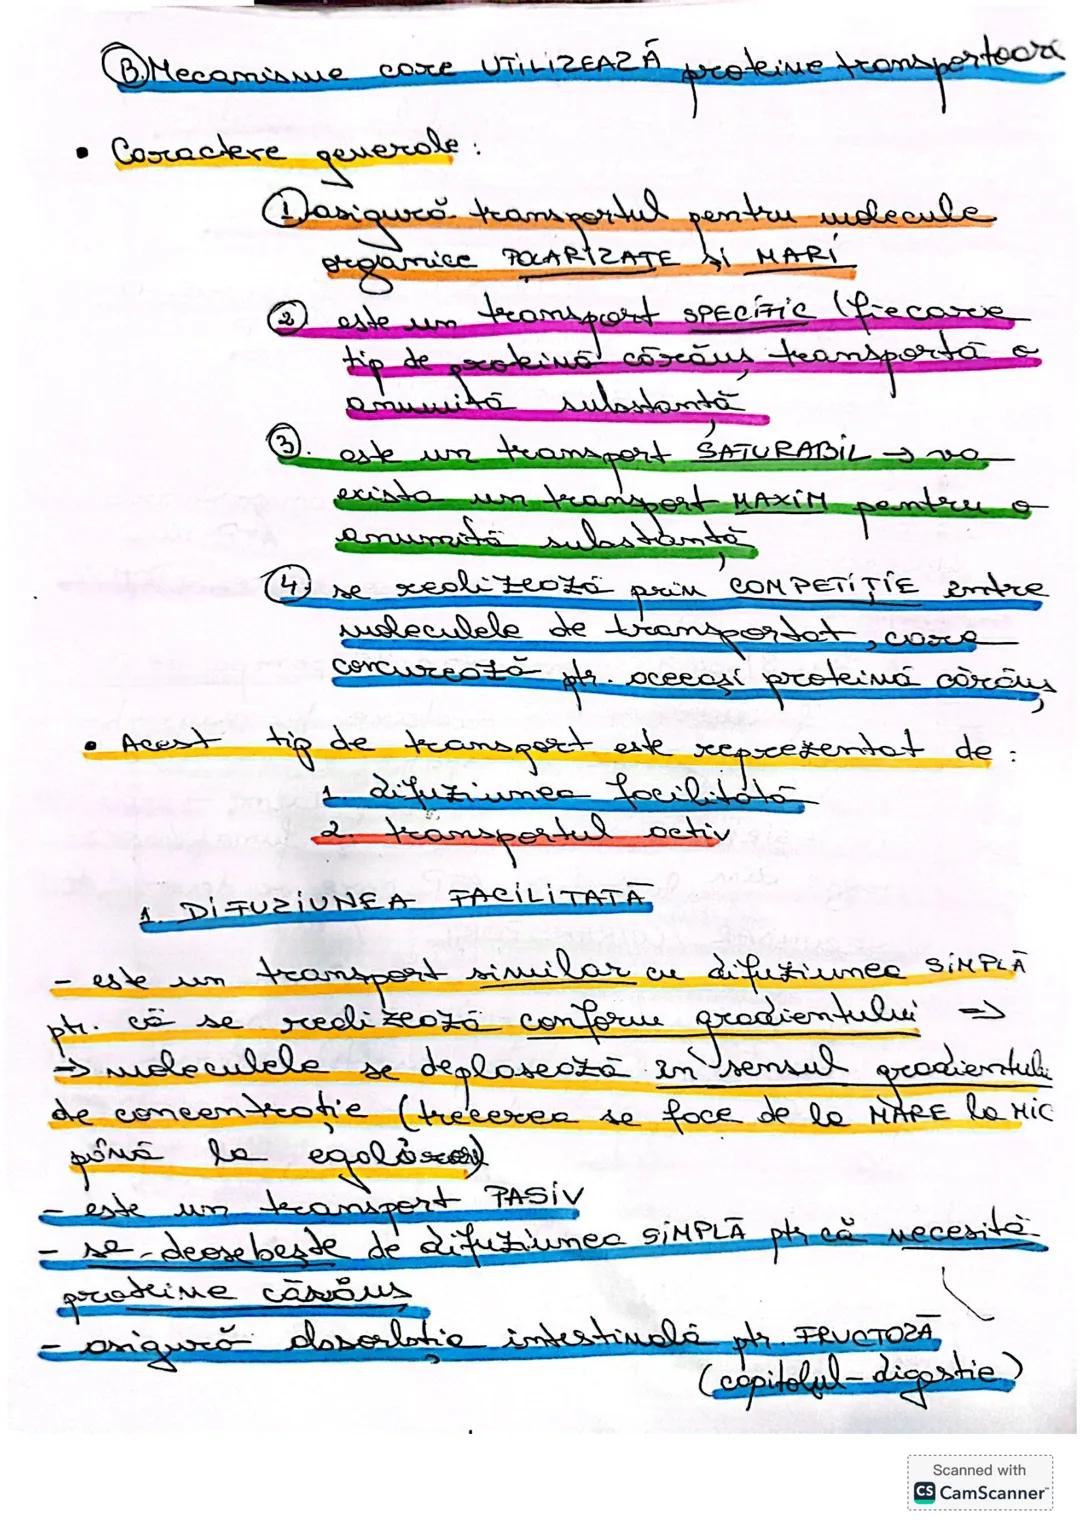 B. Mecanisme care UTILIZEAZĂ proteine transportoare
• Caractere generale:
1. asigură transportul pentru molecule
organice POLARIZATE și MARI
2 este un transport SPECIFIC (fiecare
tip de proteină cărăuș transportă o
anumită substanță
3. este un transport SATURABIL → va
exista un transport MAXIM pentru o
anumită substanță
4. se realizează prin COMPETIȚIE între
moleculele de transportat, care
concurează ptr. aceeași proteină cărăuș
• Acest tip de transport este reprezentat de:
1. difuziunea facilitată
2. transportul activ
1. DIFUZIUNEA FACILITATĂ
- este un transport similar cu difuziunea SIMPLĂ
ptr. că se realizează conform gradientului =>
=> moleculele se deplasează în sensul gradientului
de concentrație (trecerea se face de la MARE la MIC
până la egalizare)
- este un transport PASIV
- se deosebește de difuziunea SIMPLĂ ptr că necesită
proteine cărăuș
- asigură absorbția intestinală ptr. FRUCTOZĂ
(capitolul-digestie)
Scanned with
CS CamScanner